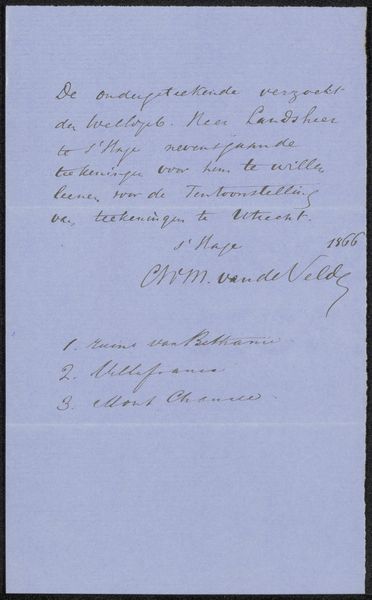 De ondergeteekende verzoekt
den WelEdgeb. Heer Landsheer
te s'Hage nevensgaande
teekeningen voor hem te willen
leenen voor de Tentoonstelling
van teekeningen te Utrecht.
s' Hage 1866
CWM. van de Velde
1. ruine van Bethanie
2. Villafranca
3. Mont